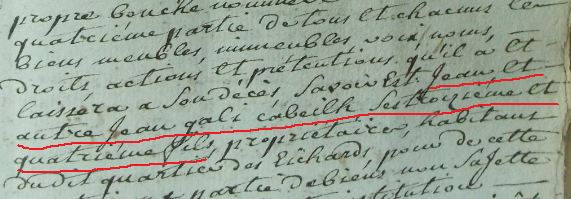 propre bouche nommé
quatrième partie de tous et chacuns les
biens meubles, immeubles, voix, noms,
droits, actions et prétentions qu'il a et
laissera a son décès, savoir est Jean, et
autre Jean gali cabeilh ses troizième et
quatrième fils, proprietaires, habitans
dudit quartier des Eichards, pour de cette
partie de biens non